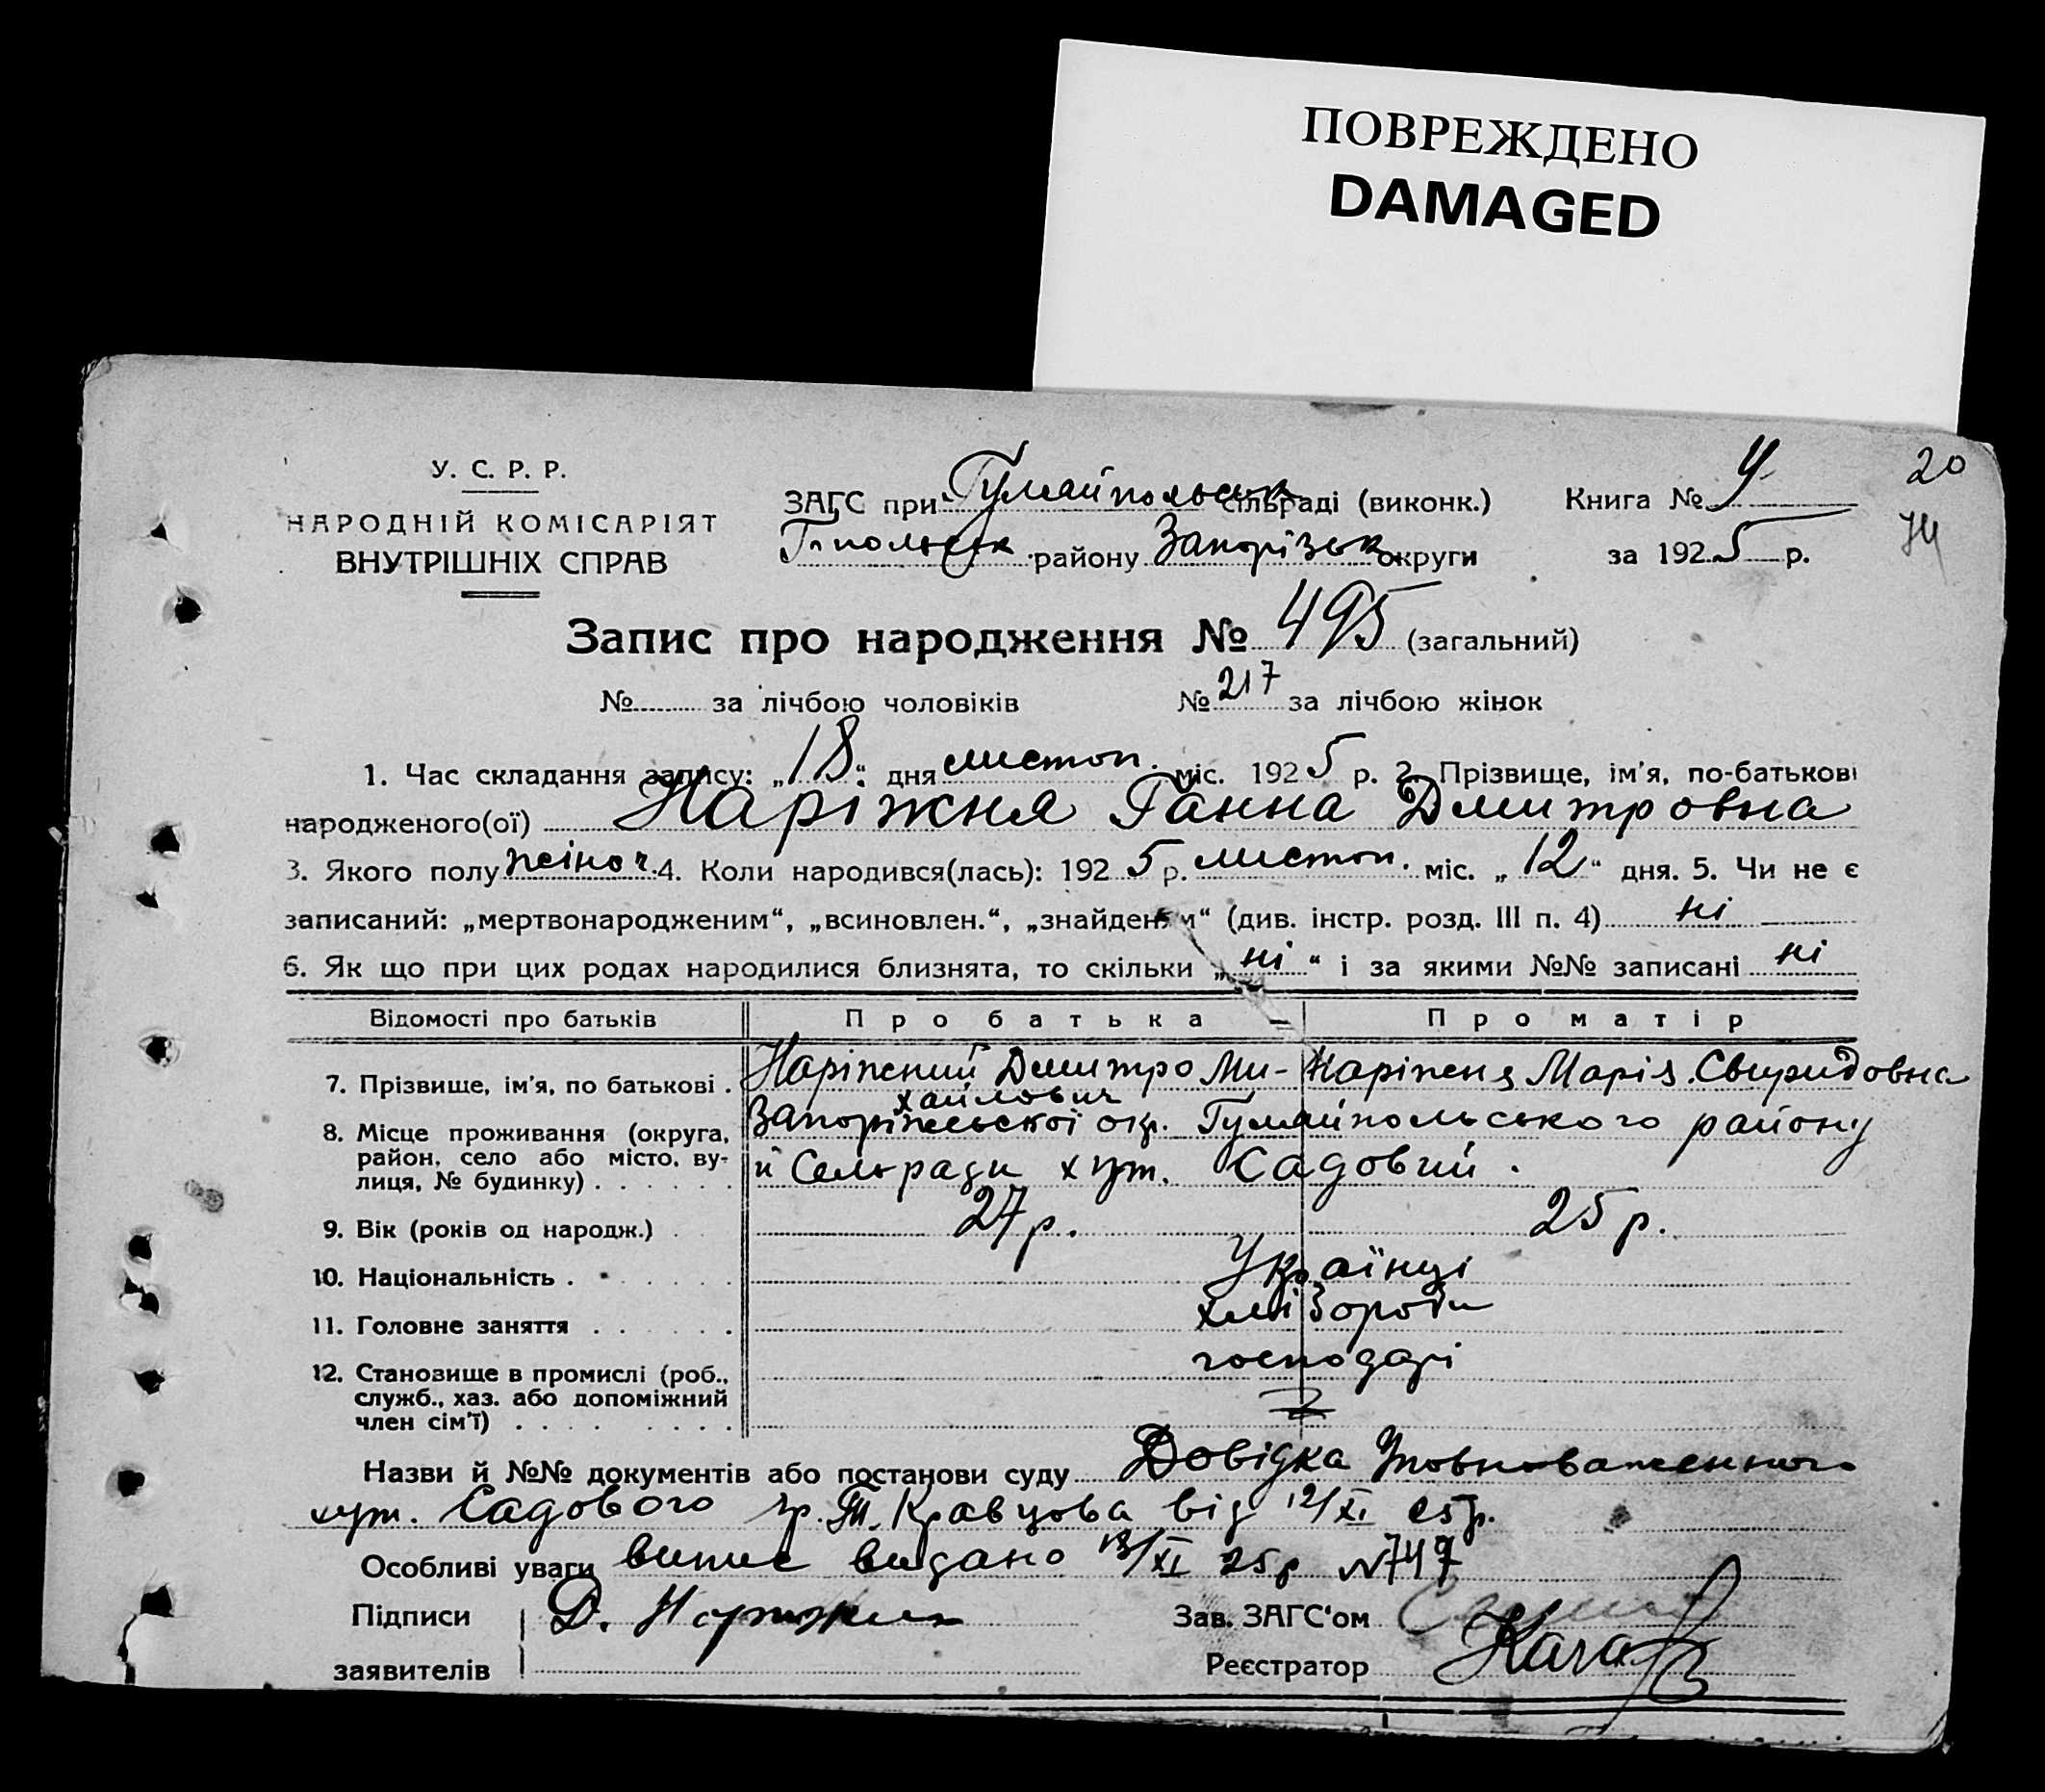 ПОВРЕЖДЕНО
DAMAGED
У. С. Р. Р.
НАРОДНІЙ КОМІСАРІЯТ
ВНУТРІШНІХ СПРАВ
ЗАГС при Гуляйпольськ сільраді (виконк.)
Гпольськ району Запорізьк округи
Книга №
за 1925 р.
20
74
Запис про народження № 495 (загальний)
№ за лічбою чоловіків № 217 за лічбою жінок
1. Час складання запису: „18“ дня листоп. міс. 1925 р. 2. Прізвище, ім'я, по-батькові
народженого(ої) Наріжня Ганна Дмитровна
3. Якого полу жіноч. 4. Коли народився(лась): 1925 р. листоп. міс. „12“ дня. 5. Чи не є
записаний: „мертвонародженим“, „всиновлен.“, „знайденим“ (див. інстр. розд. III п. 4) ні
6. Як що при цих родах народилися близнята, то скільки „ні“ і за якими №№ записані ні
Відомості про батьків Про батька Про матір
7. Прізвище, ім'я, по батькові . Наріжний Дмитро Ми- Наріжня Марія Свиридовна
хайлович
8. Місце проживання (округа, Запоріжської окр. Гуляйпольського району
район, село або місто, ву-
лиця, № будинку) . . . . . . й Сельради хут. Садовий.
9. Вік (років од народж.) . 27 р. 25 р.
10. Національність . Українці
11. Головне заняття . . . . . . хлібороби
12. Становище в промислі (роб., господарі
служб., хаз. або допоміжний
член сім'ї) . . . . . . . .
Назви й №№ документів або постанови суду Довідка Уповноваженного
хут. Садового гр. Кравцова від 12/XI 25р.
Особливі уваги випис видано 18/XI 25р N747
Підписи Д. Зав. ЗАГС'ом
заявителів Реєстратор